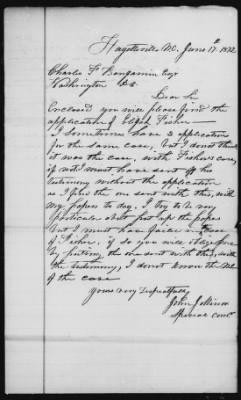 Fayetteville NC. June 17th. 1872
Charles F Benjamin Esqr
Washington DC
Dear Sir
Enclosed you will please find the
application of Elijah Fisher—
I sometimes have 2 applications
for the same case, but I dont think
it was the case, with Fishers case,
if not I must have sent off his
testimony without the application
as I filed the one sent with this, with
my papers to day. I try to be very
particular about put up the papers
but I must have failed in case
of Fisher, if so you will
by putting the one sent with this, with
the testimony, I dont know the No
of the case
Yours very Respectfully
John
Special comr